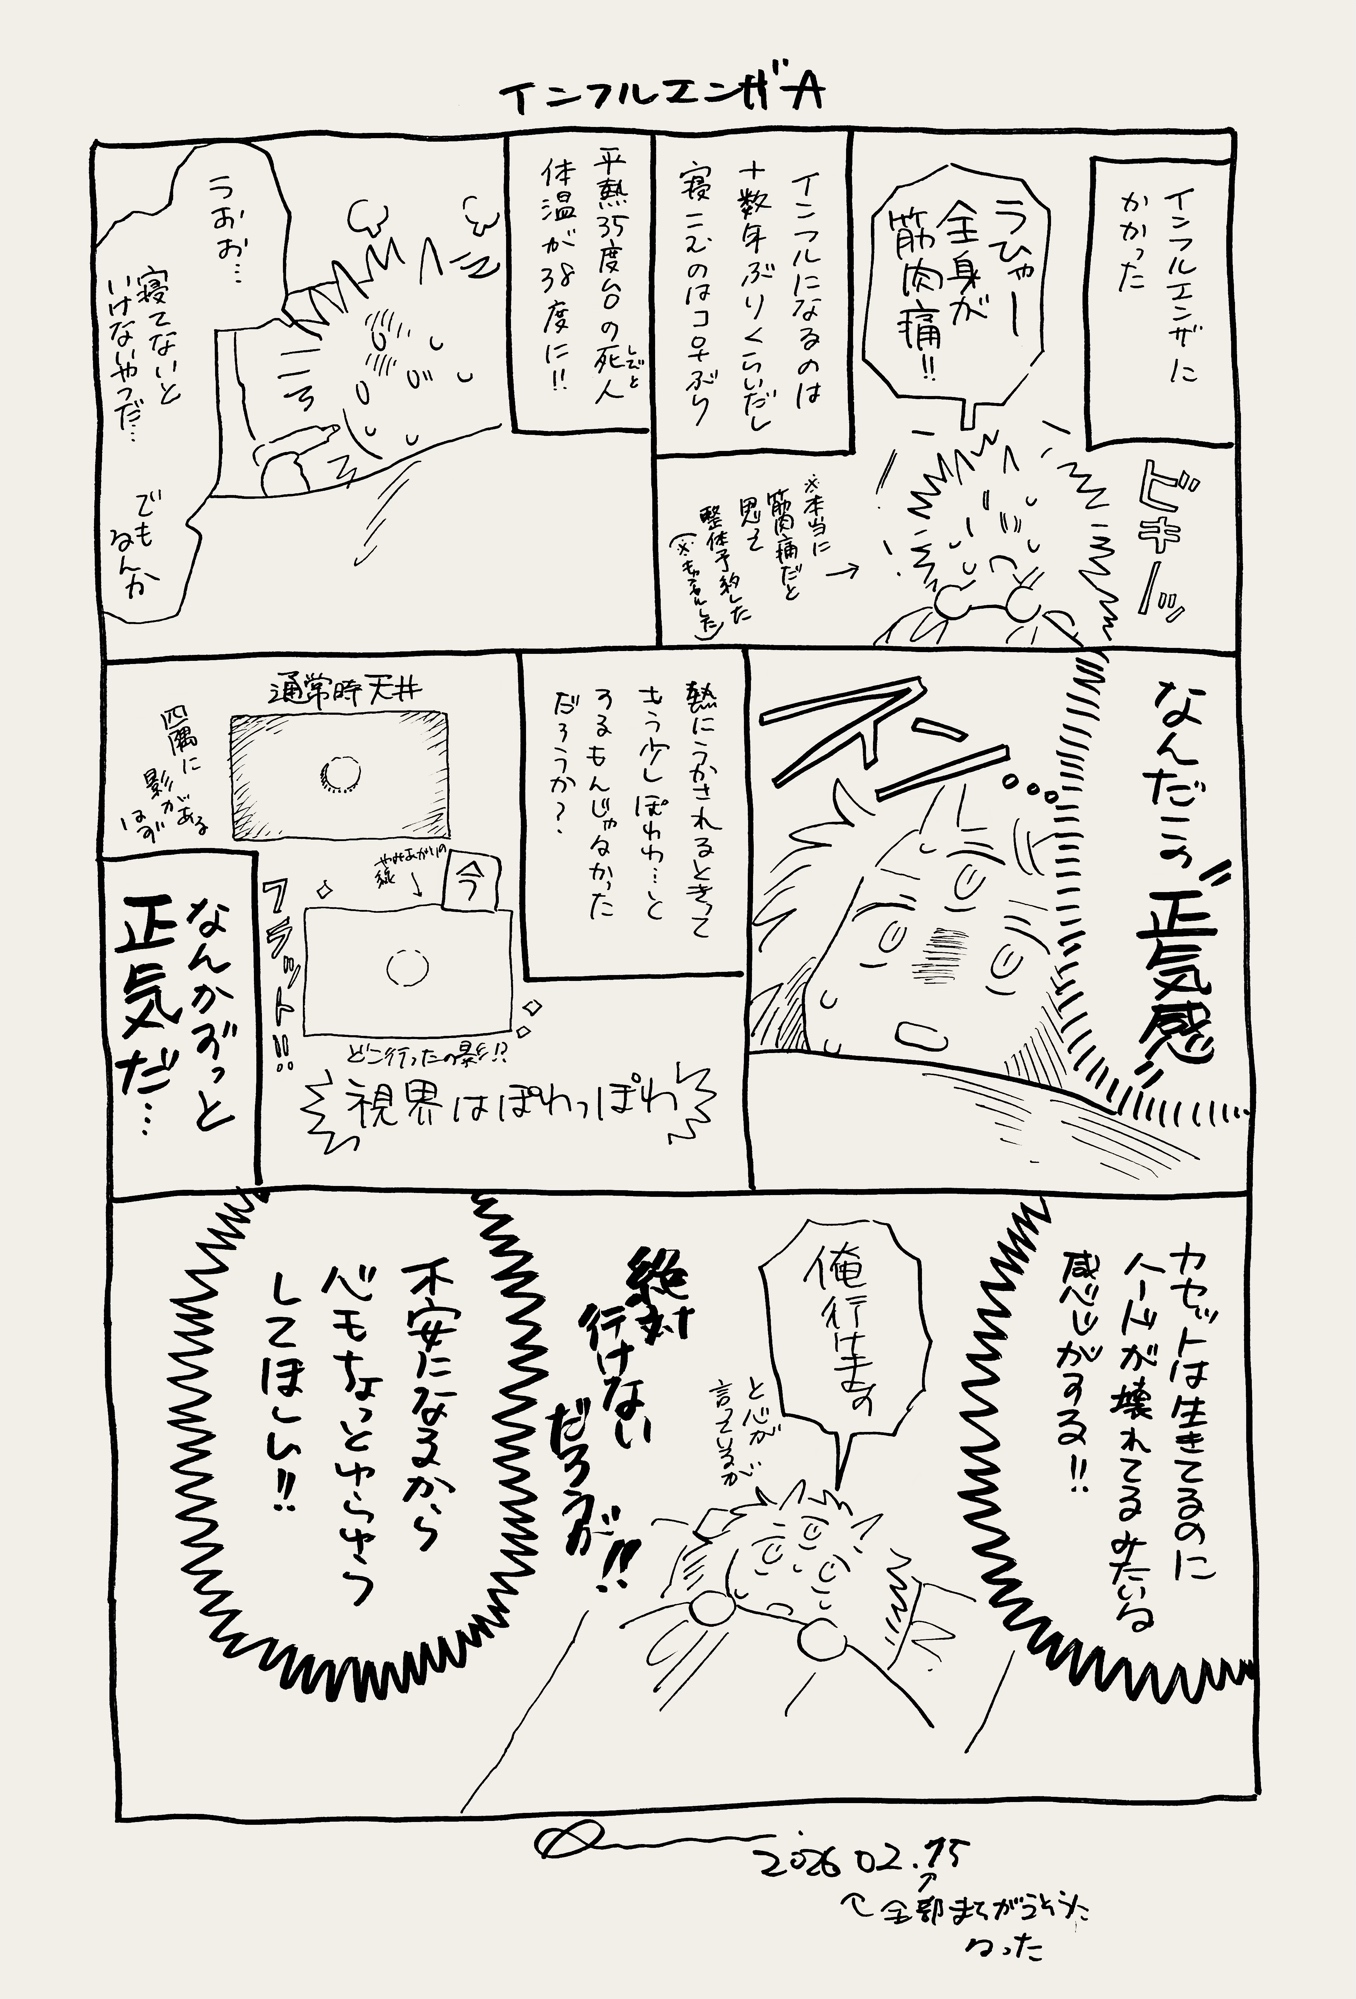 インフルエンザA
インフルエンザに
かかった
うひゃー
全身が
筋肉痛!!
ビキーッ
※本当に
筋肉痛だと
思って
整体予約した
インフルになるのは
十数年ぶりくらいだし
寝こむのはコロナぶり
平熱35度台の死人
しびと
体温が38度に!!
うおお…
寝てないと
いけないやつだ…
でも
なんか
なんだこの
"正気感"!!
熱にうかされるときって
もう少しぽわわ…と
するもんじゃなかった
だろうか?
通常時天井
四隅に
影がある
はず
今
やみあがりの
線
フラット!!
どこ行ったの影!?
視界はぽわっぽわ
なんかずっと
正気だ…
カセットは生きてるのに
ハードが壊れてるみたいな
感じがする!!
俺行けます
と心が
言っているが
絶対
行けない
だろうが!!
不安になるから
心もちょっとゆらゆら
してほしい!!
2026 02.15
全部まちがうとうに
なった